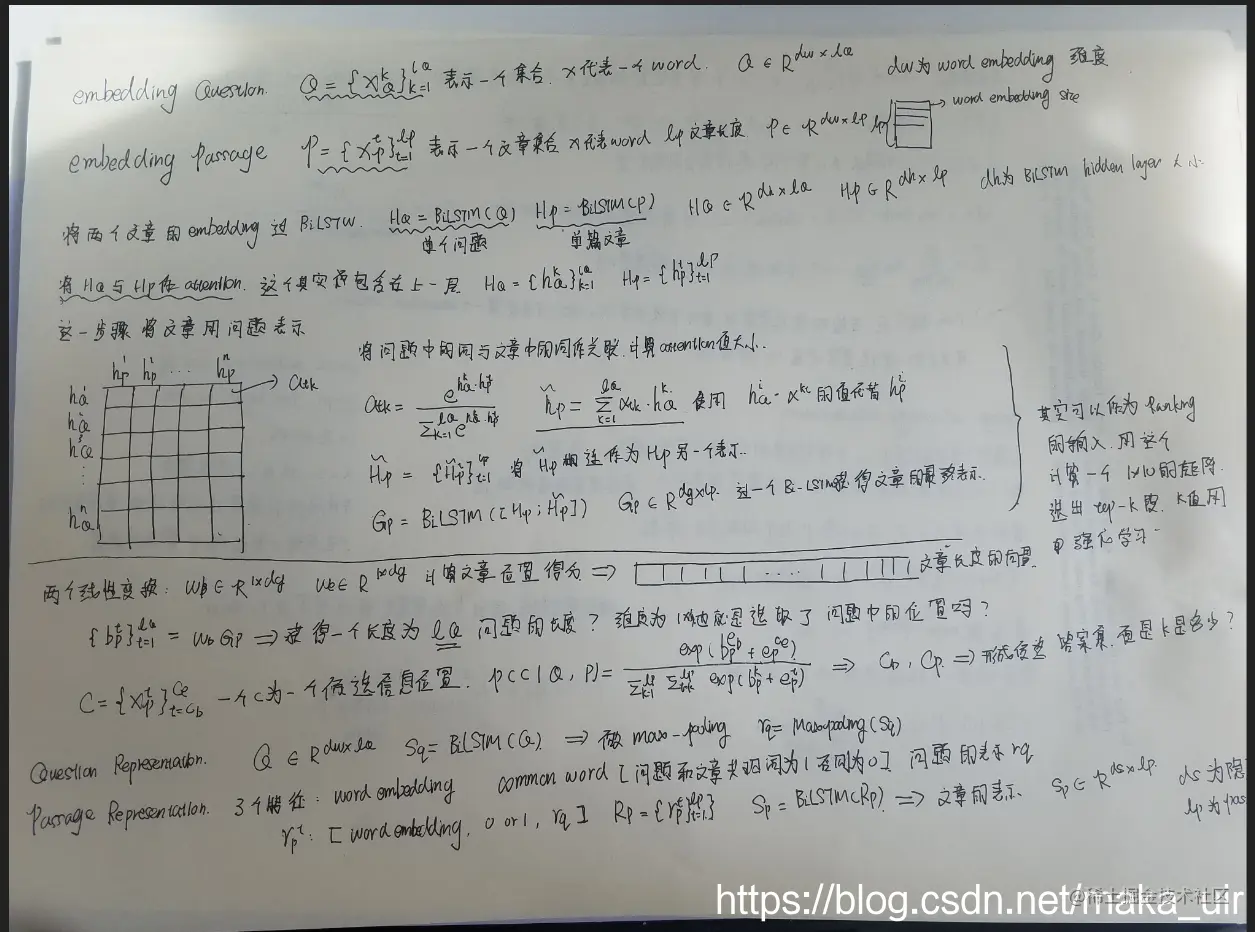 embedding Question. Q = {x_Q^k}_{k=1}^{lQ} 表示一个集合. x代表一个word. Q ∈ R^{dw×lQ} dw为word embedding 维度
→ word embedding size
embedding Passage P = {x_p^t}_{t=1}^{lp} 表示一个文章集合 x代表word lp文章长度. P ∈ R^{dw×lp} lp
将两个文章的embedding过BiLSTM. HQ = BiLSTM(Q) Hp = BiLSTM(P) HQ ∈ R^{dh×lQ} Hp ∈ R^{dh×lp} dh为BiLSTM hidden layer 大小.
单个问题 单篇文章
将HQ与Hp作attention. 这个其实 包含在上一层 HQ = {h_Q^k}_{k=1}^{lQ} Hp = {h_p^t}_{t=1}^{lp}
这一步骤将文章用问题表示
将问题中的词与文章中的词作关联. 计算attention值大小.
h_p^1 h_p^1 ... h_p^n → αtk
h_Q^1
h_Q^2
h_Q^3
⋮
h_Q^n
αtk = e^{h_Q^k·h_p^t} / Σ_{k=1}^{lQ} e^{h_Q^k·h_p^t} h̃p = Σ_{k=1}^{lQ} αtk·h_Q^k 使用 的值代替 h_p^i
H̃p = {H̃_p^t}_{t=1}^{lp} 将H̃p 作为Hp另一个表示.
Gp = BiLSTM([Hp; H̃p]) Gp ∈ R^{dg×lp}. 过一个Bi-LSTM获得文章的最终表示.
其实可以作为ranking
的输入. 用这个
计算一个1×10的矩阵.
选出top-k段. k值用
强化学习.
两个线性变换: Wb ∈ R^{1×dg} We ∈ R^{1×dg} 计算文章位置得分 ⇒ .... 文章长度的向量.
{b_p^t}_{t=1}^{lQ} = Wb Gp ⇒ 获得一个长度为 lQ 问题的长度? 维度为 选取了问题中的位置吗?
C = {x_p^t}_{t=Cb}^{Ce} 一个C为一个候选信息位置. p(C|Q, P) = exp(b_p^{Cb} + e_p^{Ce}) / exp(b_p^k + e_p^t) ⇒ Cb, Cp. ⇒ 形成候选 答案集. 但是k是多少?
Question Representation. Q ∈ R^{dw×lQ} Sq = BiLSTM(Q) ⇒ 做max-pooling rq = Maxpooling(Sq)
Passage Representation. 3个特征: word embedding common word [问题和文章共现词为1否则为0] 问题的表示rq
r_p^t: [word embedding, 0 or 1, rq] Rp = {r_p^t}_{t=1}^{lp} Sp = BiLSTM(Rp) ⇒ 文章的表示 Sp ∈ R^{ds×lp} ds为隐
lp为pas
https://blog.csdn.net/maka_uir
@稀土掘金技术社区